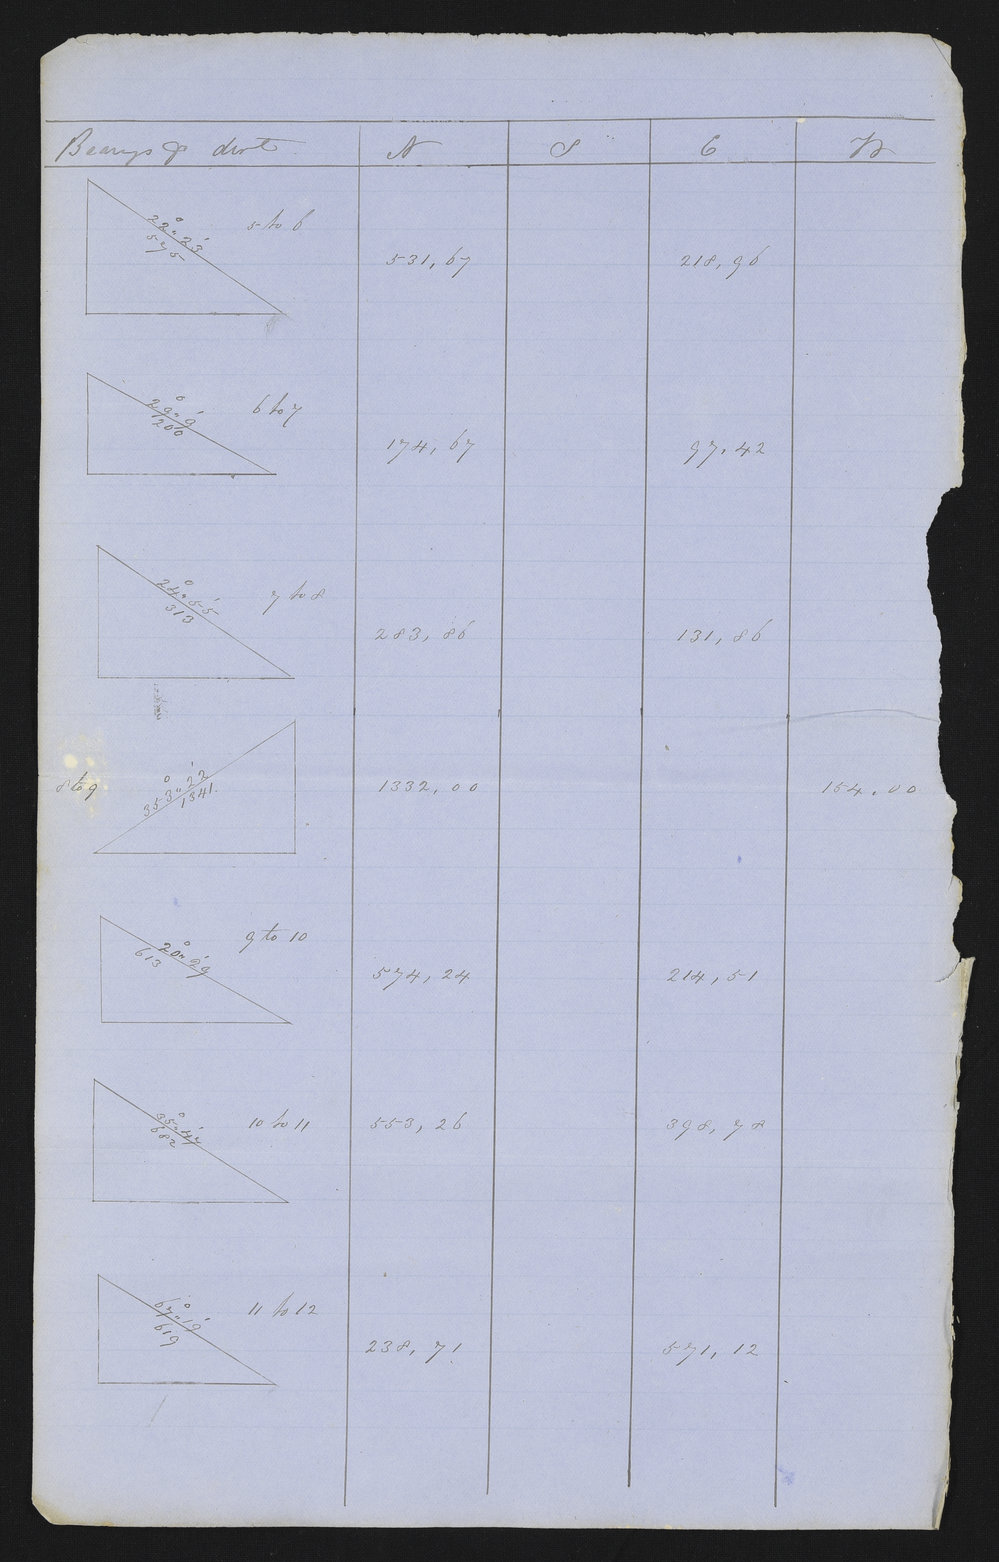 Bearings & dist N S E W
22°" 23' 5 to 6
575
531,67 218,96
29°" 9' 6 to 7
200
174,67 97.42
24°" 55' 7 to 8
313
283,86 131,86
8 to 9 353°" 22' 1332,00 154.00
1341.
9 to 10
20°" 29'
613
574,24 214,51
35°" 47' 10 to 11 553,26 398,78
682
67°" 19' 11 to 12
619
238,71 571,12